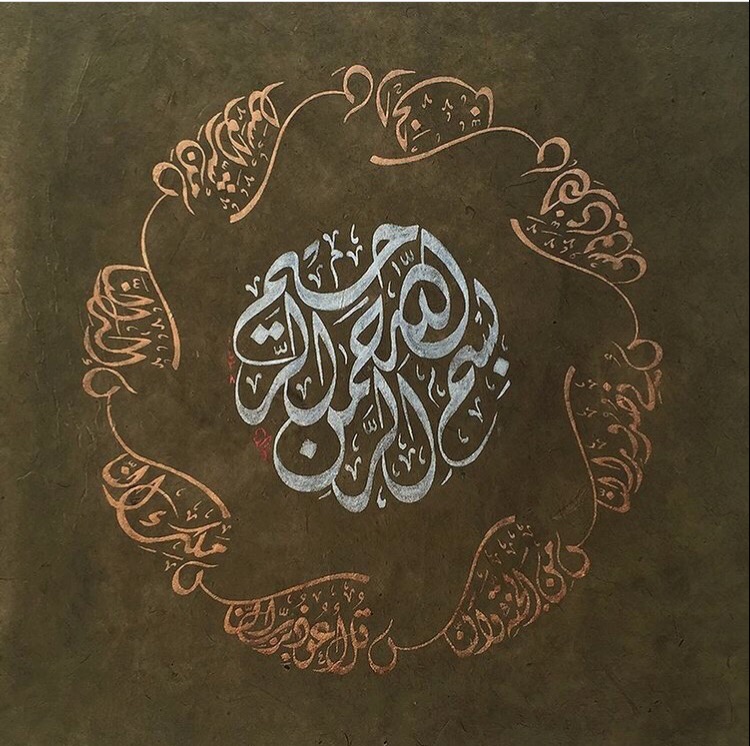 بسم الله الرحمن الرحيم
قل أعوذ برب الناس
ملك الناس
إله الناس
من شر الوسواس
الخناس
الذي يوسوس
في صدور الناس
من الجنة والناس